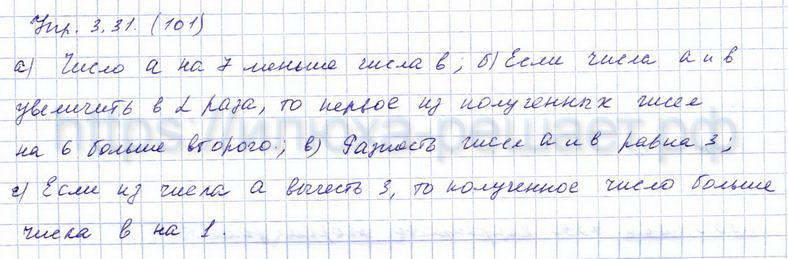 Упр. 3.31. (101)
а) Число а на 7 меньше числа в; б) Если числа а и в
увеличить в 2 раза, то первое из полученных чисел
на 6 больше второго.; в) Разность чисел а и в равна 3;
г) Если из числа а вычесть 3, то полученное число больше
числа в на 1.